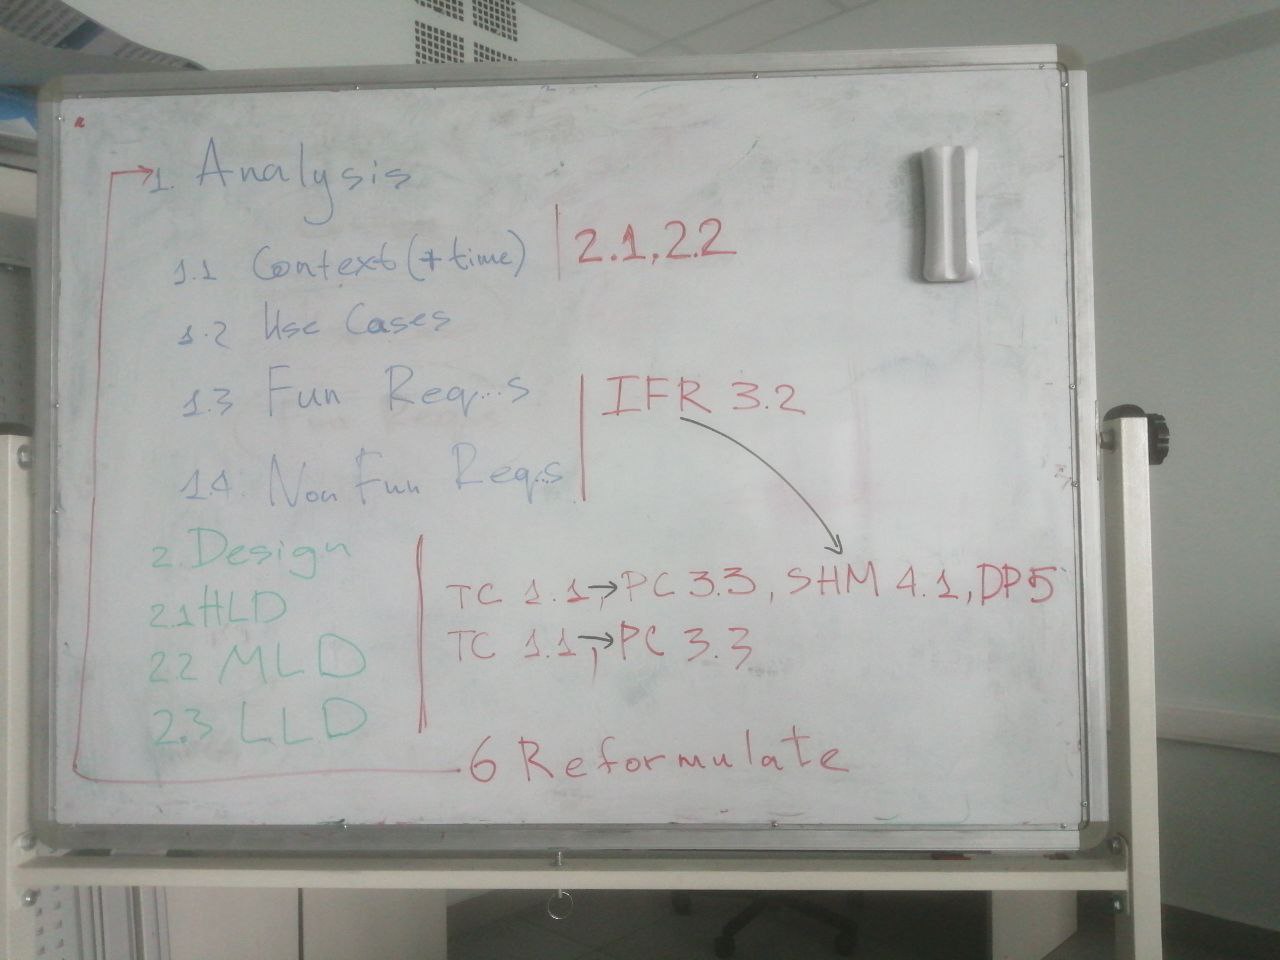 1. Analysis
1.1 Context (+ time) | 2.1, 2.2
1.2 Use Cases
1.3 Fun Req..s | IFR 3.2
1.4. Non Fun Req..s
2. Design
2.1 HLD | TC 1.1, → PC 3.3, SHM 4.1, DP5
2.2 MLD | TC 1.1, → PC 3.3
2.3 LLD
6 Reformulate